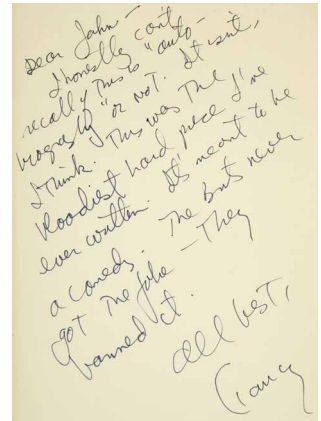 Dear John –
I honestly can't
recally this is "auto-
biography" or not. It isn't,
I think. This was the
bloodiest hard piece I've
ever written. It's meant to be
a comedy. The Brits never
got the joke – They
banned it.
All best,
Clancy